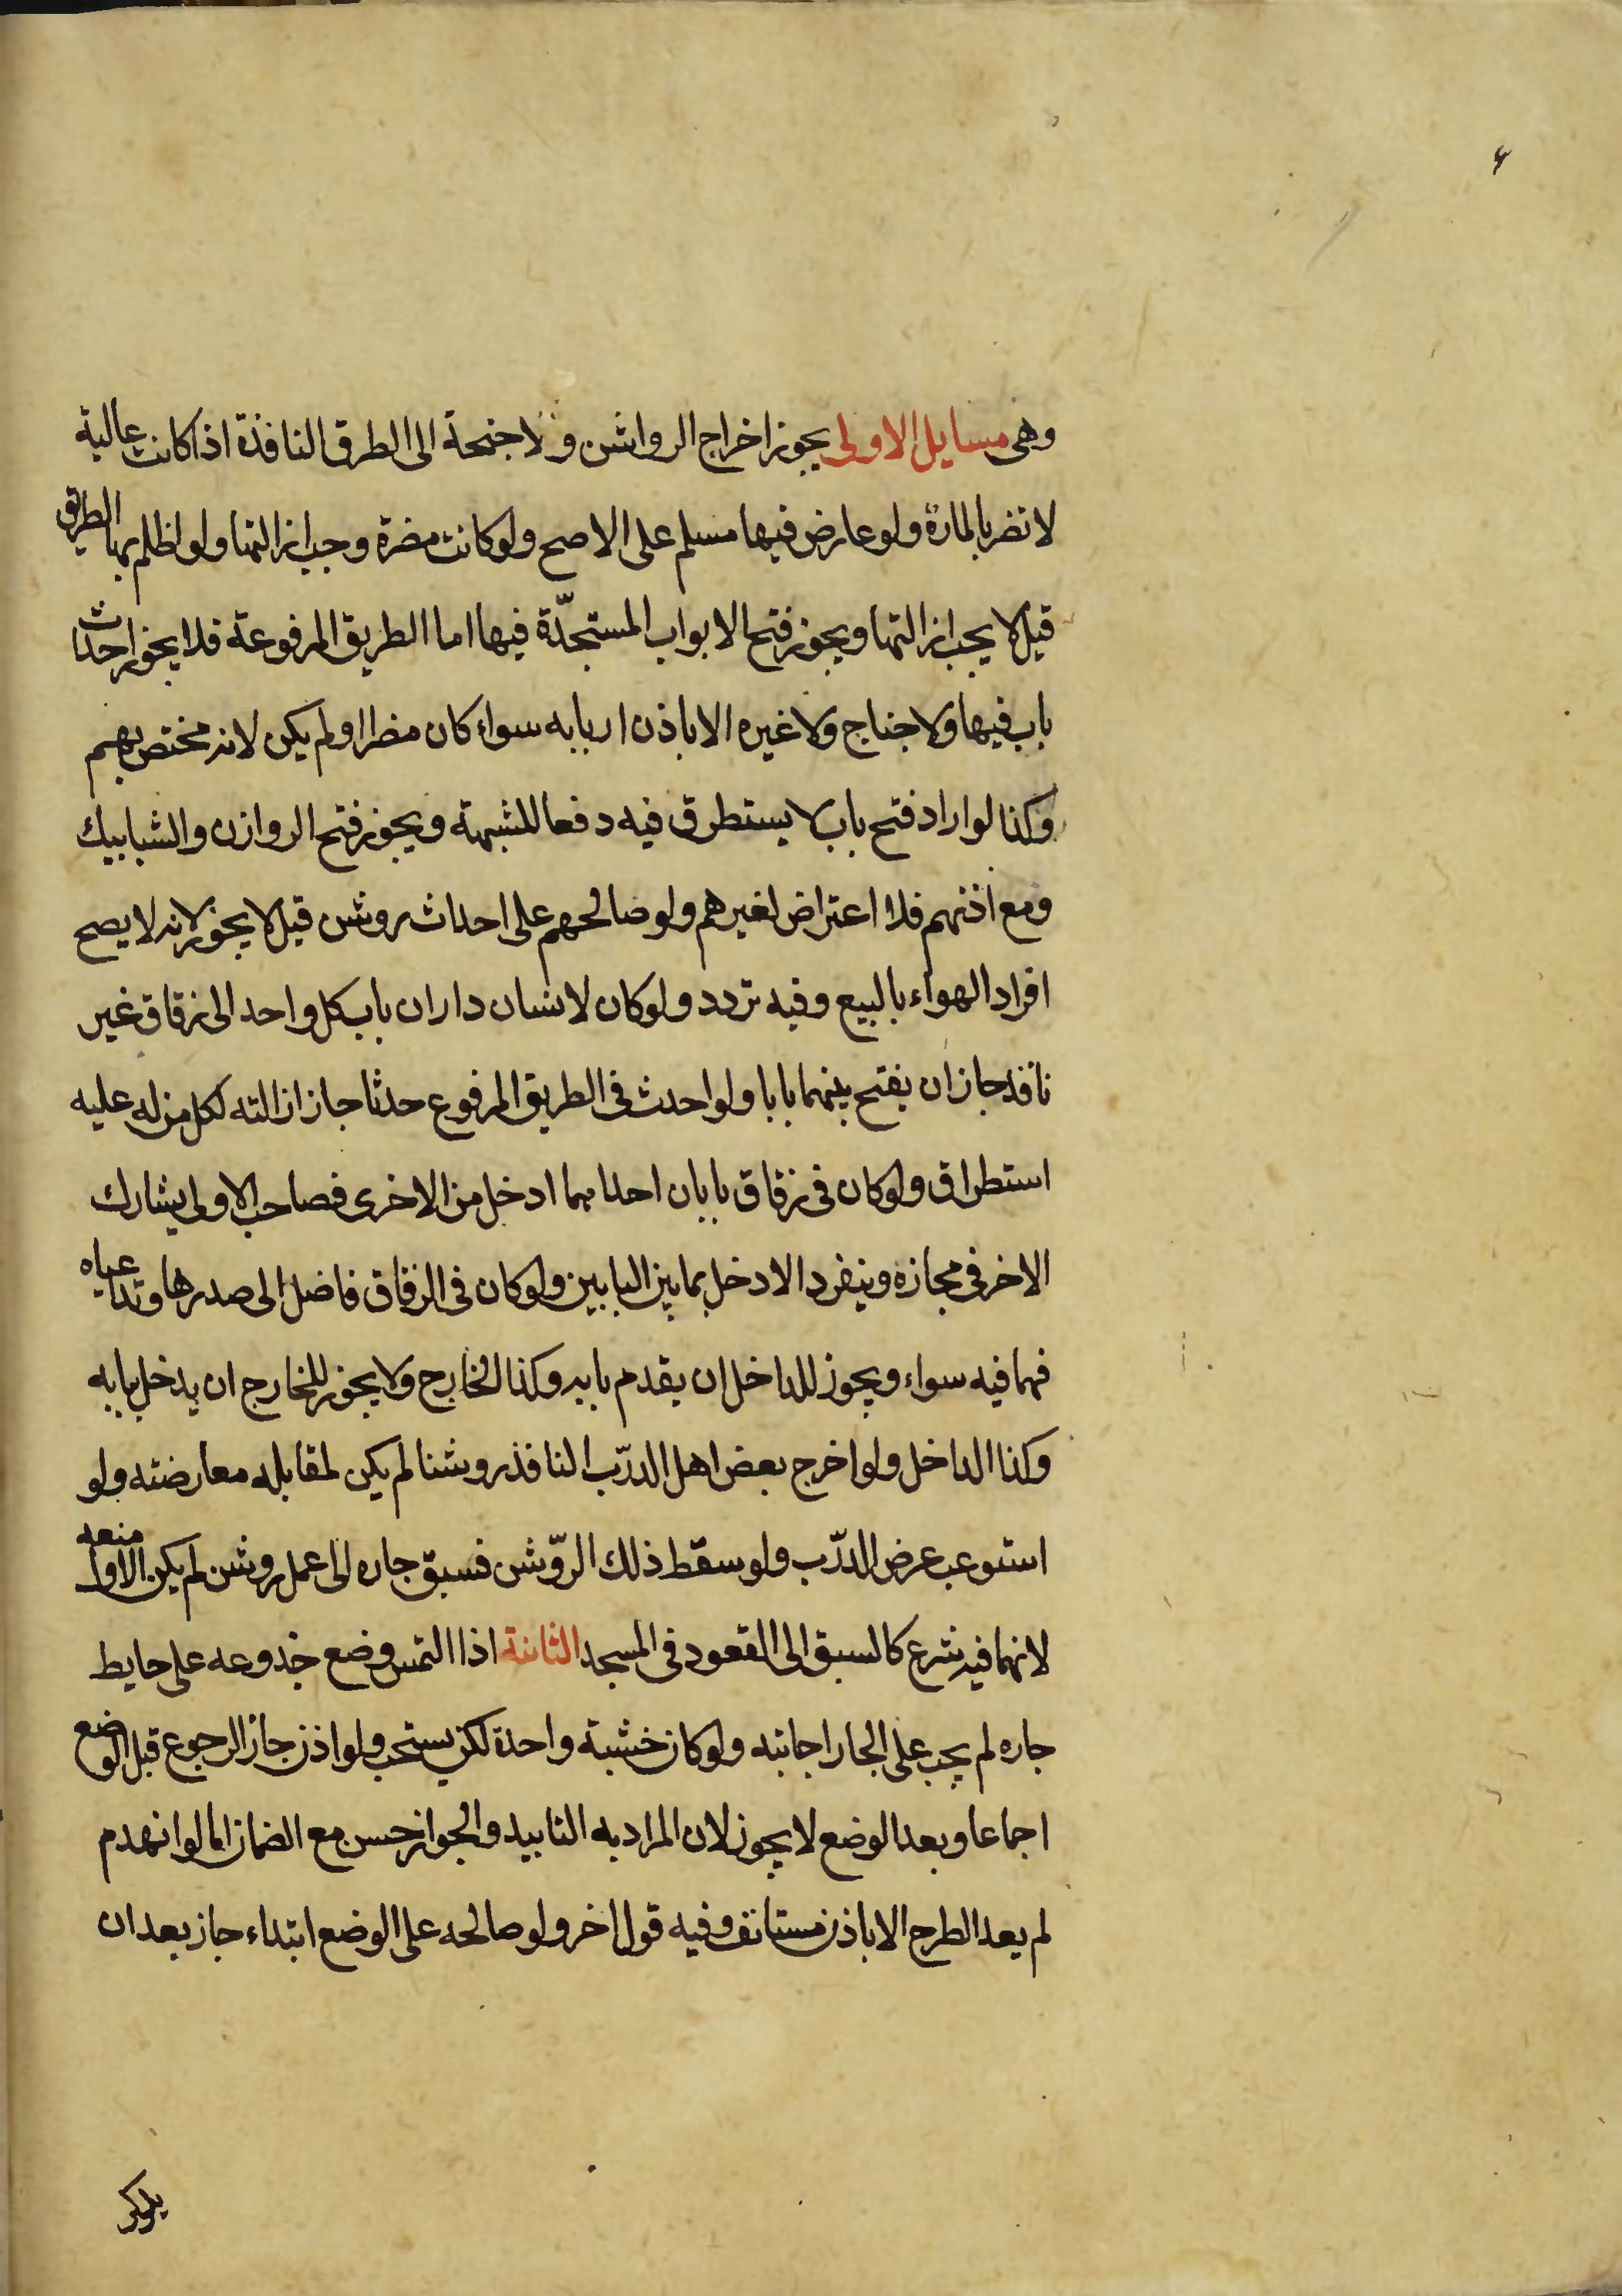 ۴
وهى مسايل الاولى يجوز اخراج الرواشن والاجنحة الى الطرق النافذة اذا كانت عالية
لا تضر بالمارة ولو عارض فيها مسلم على الاصح ولو كانت مضرة وجب ازالتها ولو اظلم بها الطريق
قيل لا يجب ازالتها ويجوز فتح الابواب المستجدّة فيها اما الطريق المرفوعة فلا يجوز احداث
باب فيها ولا جناح ولا غيره الا باذن اربابه سواء كان مضرا او لم يكن لانه مختص بهم
وكذا لو اراد فتح باب لا يستطرق فيه دفعا للشبهة ويجوز فتح الروازن والشبابيك
ومع اذنهم فلا اعتراض لغيرهم ولو صالحهم على احداث روشن قيل لا يجوز لانه لا يصح
افراد الهواء بالبيع وفيه تردد ولو كان لانسان داران باب كل واحد الى زقاق غير
نافد جاز ان يفتح بينهما بابا ولو احدث فى الطريق المرفوع حدثا جاز ازالته لكل من له عليه
استطراق ولو كان فى زقاق بابان احدا مهما ادخل من الاخرى فصاحب الاولى يشارك
الاخر فى مجازه وينفرد الادخل بما بين البابين ولو كان فى الزقاق فاضل الى صدرها وتداعياه
فهما فيه سواء ويجوز للداخل ان يقدم بابه وكذا الخارج ولا يجوز للخارج ان يدخل بابه
وكذا الداخل ولو اخرج بعض اهل الدرّب النافذ روشنا لم يكن لمقابله معارضته ولو
استوعب عرض الدرّب ولو سقط ذلك الروّشن فسبق جاره الى عمل روشن لم يكن الاول منعه
لانهما فيه شرع كالسبق الى القعود فى المسجد الثانية اذا التمس وضع جذوعه على حايط
جاره لم يجب على الجار اجابته ولو كان خشبة واحدة لكن يستحب ولو اذن جاز الرجوع قبل الوضع
اجماعا وبعد الوضع لا يجوز لان المراد به التابيد والجواز حسن مع الضمان اما لو انهدم
لم يعد الطرح الا باذن مستانف وفيه قول اخر ولو صالحه على الوضع ابتداء جاز بعد ان
يذكر